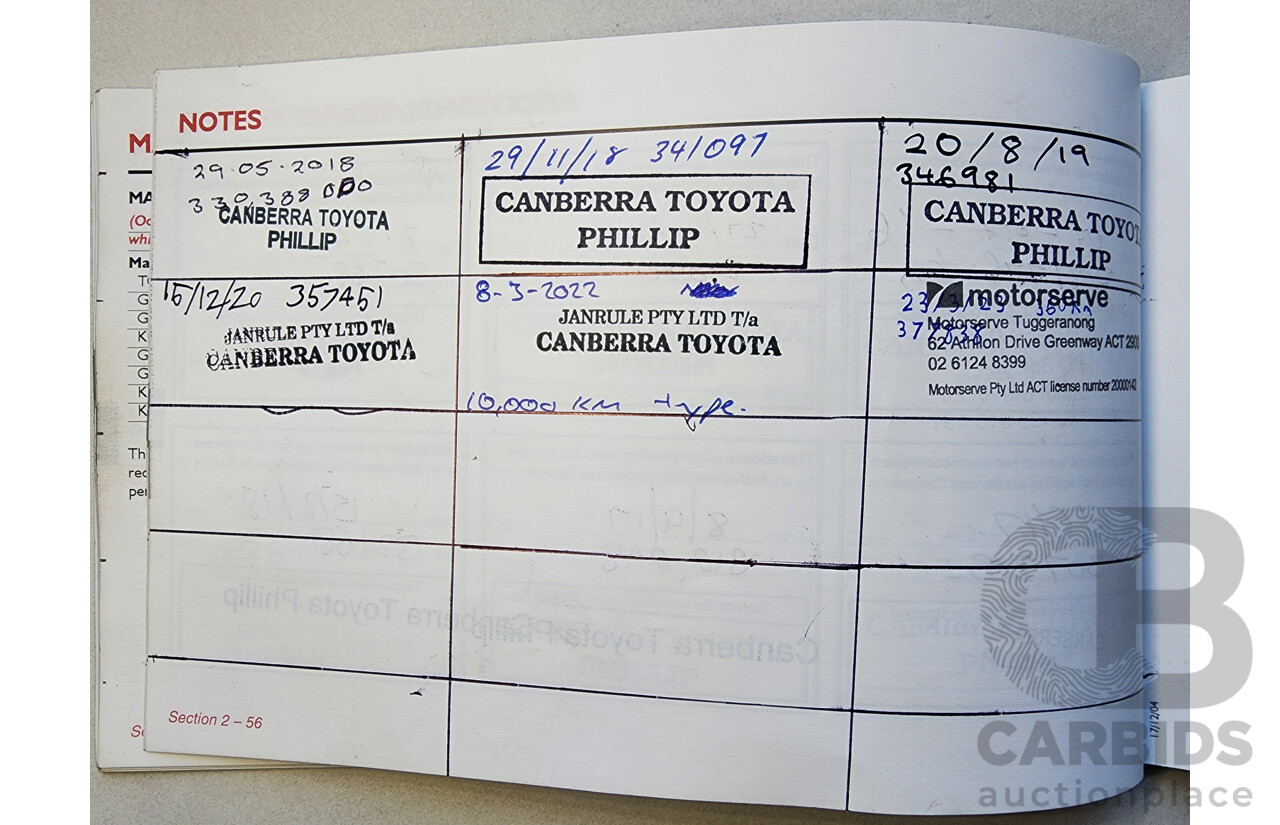 NOTES
29.05.2018
330,388
CANBERRA TOYOTA
PHILLIP
29/11/18 341097
CANBERRA TOYOTA
PHILLIP
20/8/19
346981
CANBERRA TOYOT
PHILLIP
15/12/20 357451
JANRULE PTY LTD T/a
CANBERRA TOYOTA
8-3-2022
JANRULE PTY LTD T/a
CANBERRA TOYOTA
10,000 KM type.
motorserve
23/3/23
Motorserve Tuggeranong
62 Athllon Drive Greenway ACT 2900
02 6124 8399
Motorserve Pty Ltd ACT license number 20000142
Section 2 – 56
M
MA
(Oc
whi
Ma
Th
rec
per
Se
17/12/04
CARBIDS
auctionplace